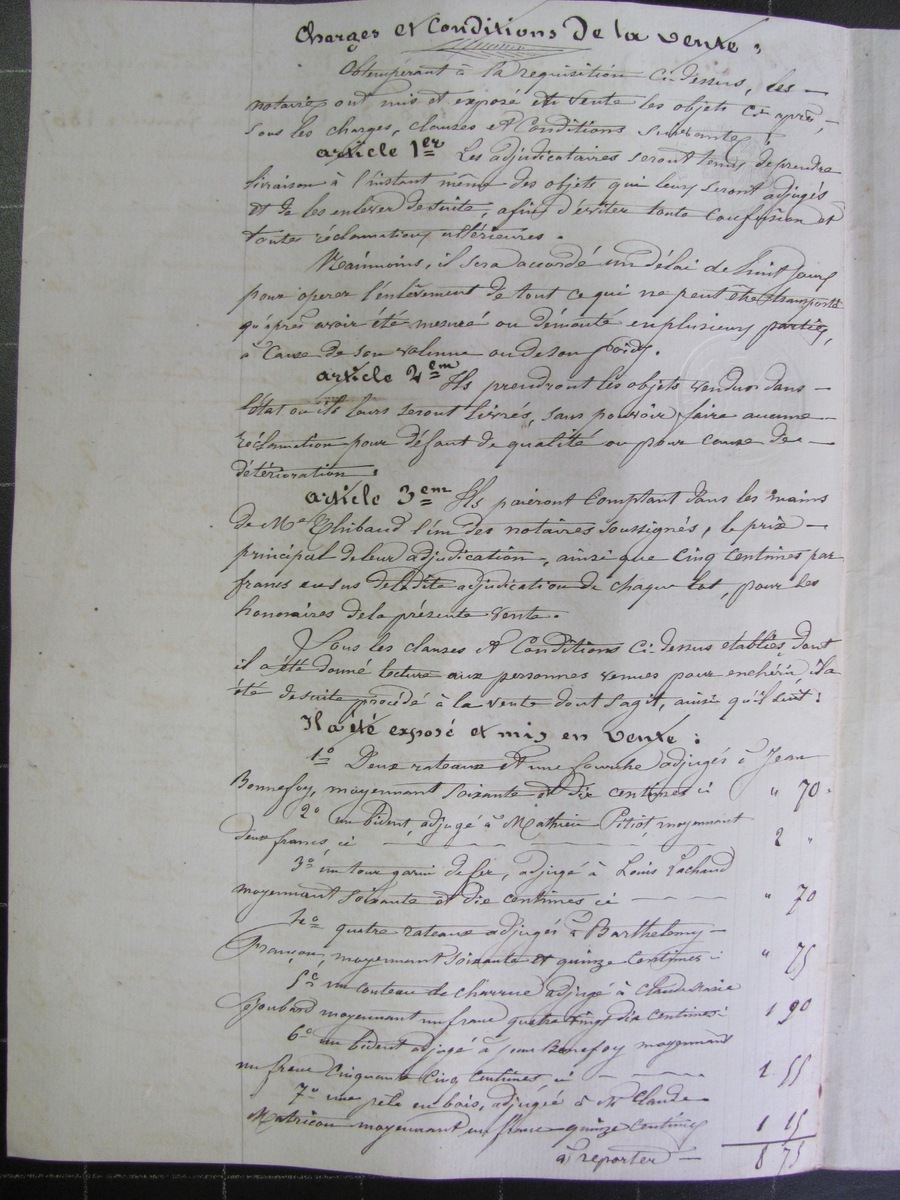 Charges et Conditions De la vente :
Obtempérant à la requisition ci-dessus, les —
notaires ont mis et exposé en vente les objets ci-après, —
sous les charges, clauses et Conditions suivantes :
article 1er Les adjudicataires seront tenus de prendre
livraison à l'instant même des objets qui leurs seront adjugés
et de les enlever de suite, afin d'éviter toute confusion et
toutes réclamations ultérieures.
Néanmoins, il sera accordé un délai de huit jours
pour operer l'enlèvement de tout ce qui ne peut être transporté
qu'après avoir été mesuré ou démonté en plusieurs parties,
à Cause de son volume ou de son poids.
article 2em Ils prendront les objets vendus dans —
l'état ou ils leurs seront livrés, sans pouvoir faire aucune —
réclamation pour défaut de qualité ou pour cause de —
détérioration.
article 3em Ils paieront Comptant dans les mains
de Me Thibaud l'un des notaires soussignés, le prix —
principal de leur adjudication, ainsi que cinq centimes par
francs en sus de ladite adjudication de chaque lot, pour les
honoraires de la présente vente.
Sous les clauses et Conditions ci-dessus etablies, dont
il a été donné lecture aux personnes venues pour enchérir il a
été de suite procédé à la vente dont s'agit, ainsi qu'il suit :
Il a été exposé et mis en vente :
1o Deux rateaux et une fourche adjugés à Jean
Bonnefoy, moyennant soixante et dix centimes ci " 70
2o un bident, adjugé à Mathieu Pitiot, moyennant
deux francs, ci — 2 "
3o un tour garni de fer, adjugé à Louis Lachaud
moyennant soixante et dix centimes ci — " 70
4o quatre rateaux adjugés à Barthelemy —
Françon, moyennant soixante et quinze centimes ci " 75
5o un couteau de charrue adjugé à Claude Marie
moyennant un franc quatre vingt dix centimes 1 90
6o un bident adjugé à Jean Bonefoy moyennant
un franc cinquante cinq centimes, ci — 1 55
7o une pèle en bois, adjugée à Mr Claude
Matricon moyennant un franc quinze centimes 1 15
à reporter — 8 75